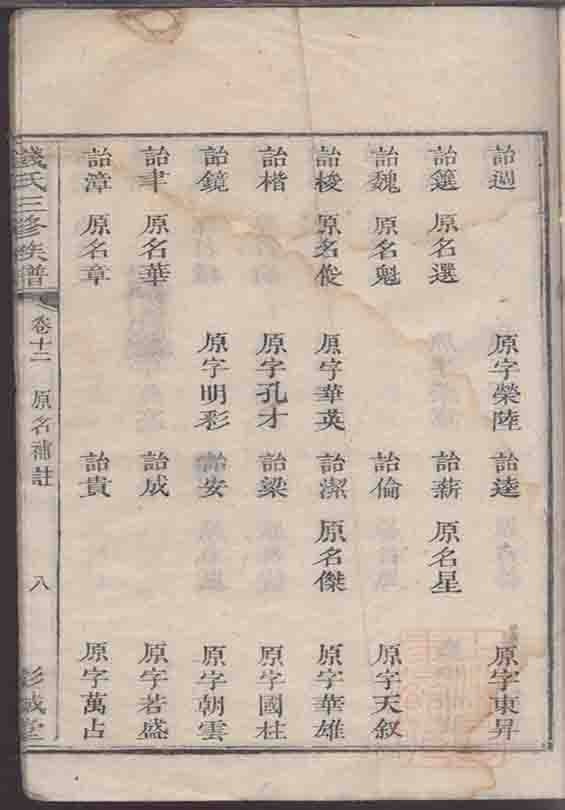 詒週 原字榮陸 詒逵 原字東昇
詒籑 原名選 詒薪 原名星
詒魏 原名魁 詒倫 原字天叙
詒梭 原名俊 原字華英 詒潔 原名傑 原字華雄
詒楷 原字孔才 詒梁 原字國柱
詒鏡 原字明彩 詒安 原字朝雲
詒聿 原名華 詒成 原字若盛
詒漳 原名章 詒貴 原字萬占
錢氏三修族譜 卷十二 原名補註 八 彭城堂